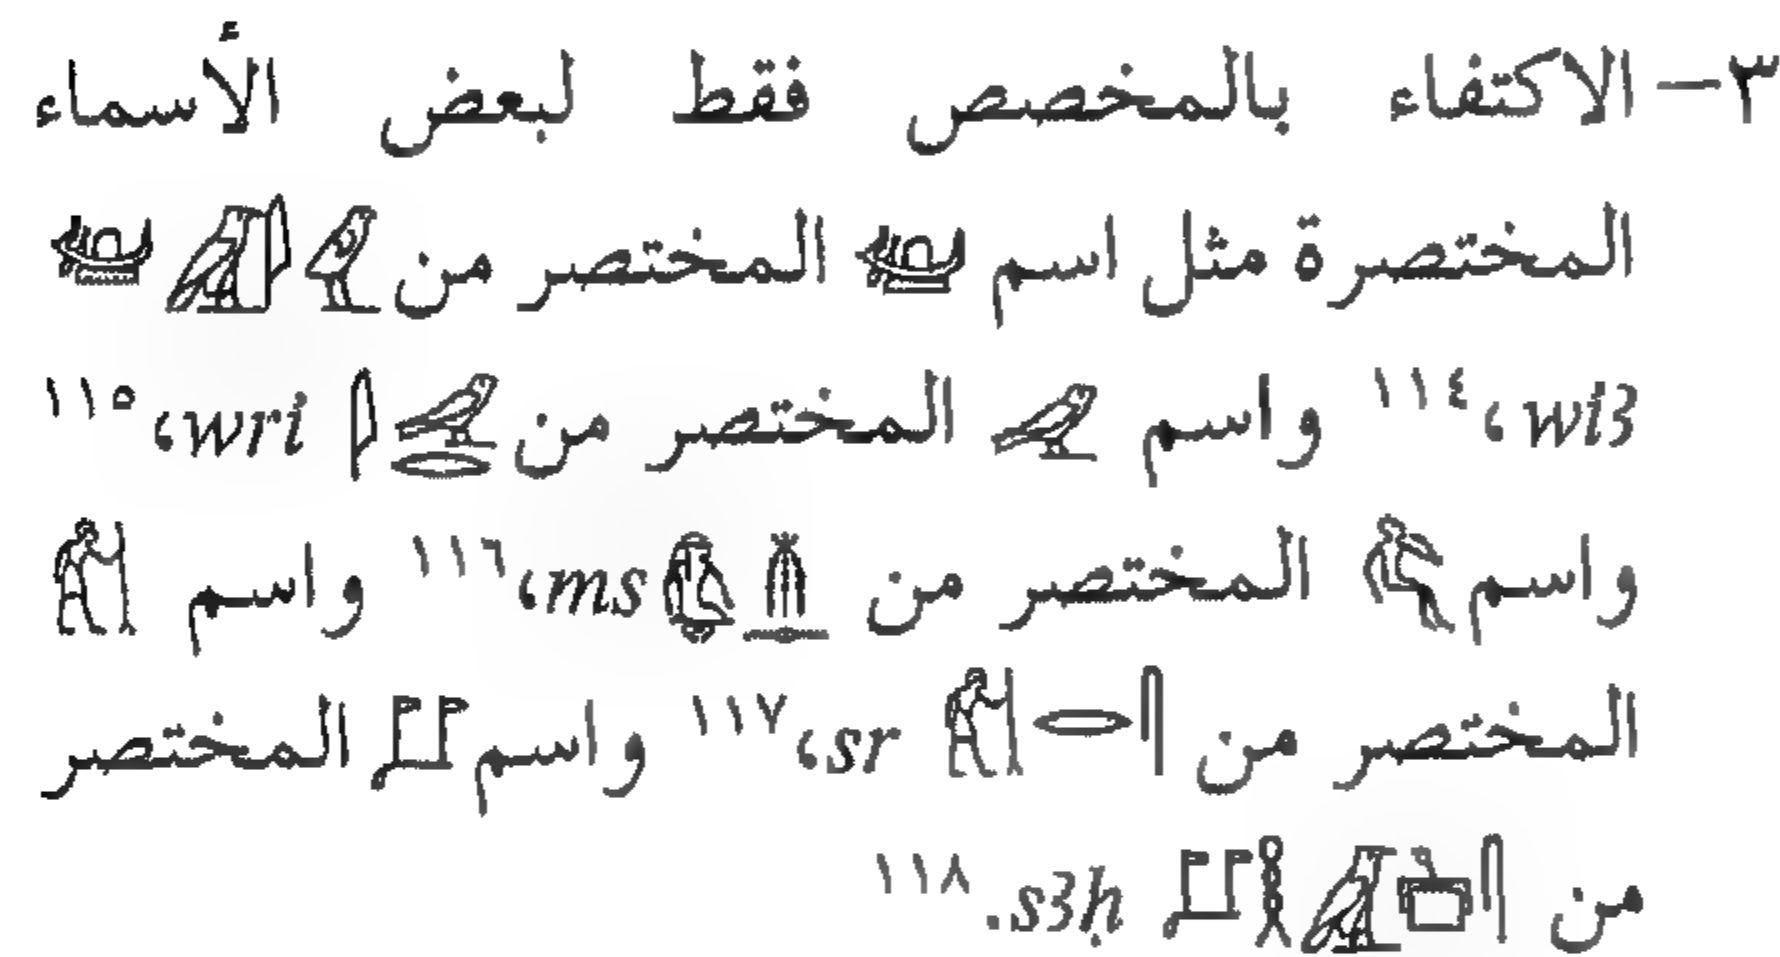 ٣- الاكتفاء بالمخصص فقط لبعض الأسماء
المختصرة مثل اسم المختصر من 𓅱𓇋𓄿
wi3،١١٤ واسم 𓅨 المختصر من 𓅨𓂋𓇋 wri،١١٥
واسم 𓀔 المختصر من 𓄟 ms،١١٦ واسم 𓀙
المختصر من 𓋴𓂋𓀙 sr،١١٧ واسم المختصر
من 𓋴𓄿𓎛 s3ḥ.١١٨